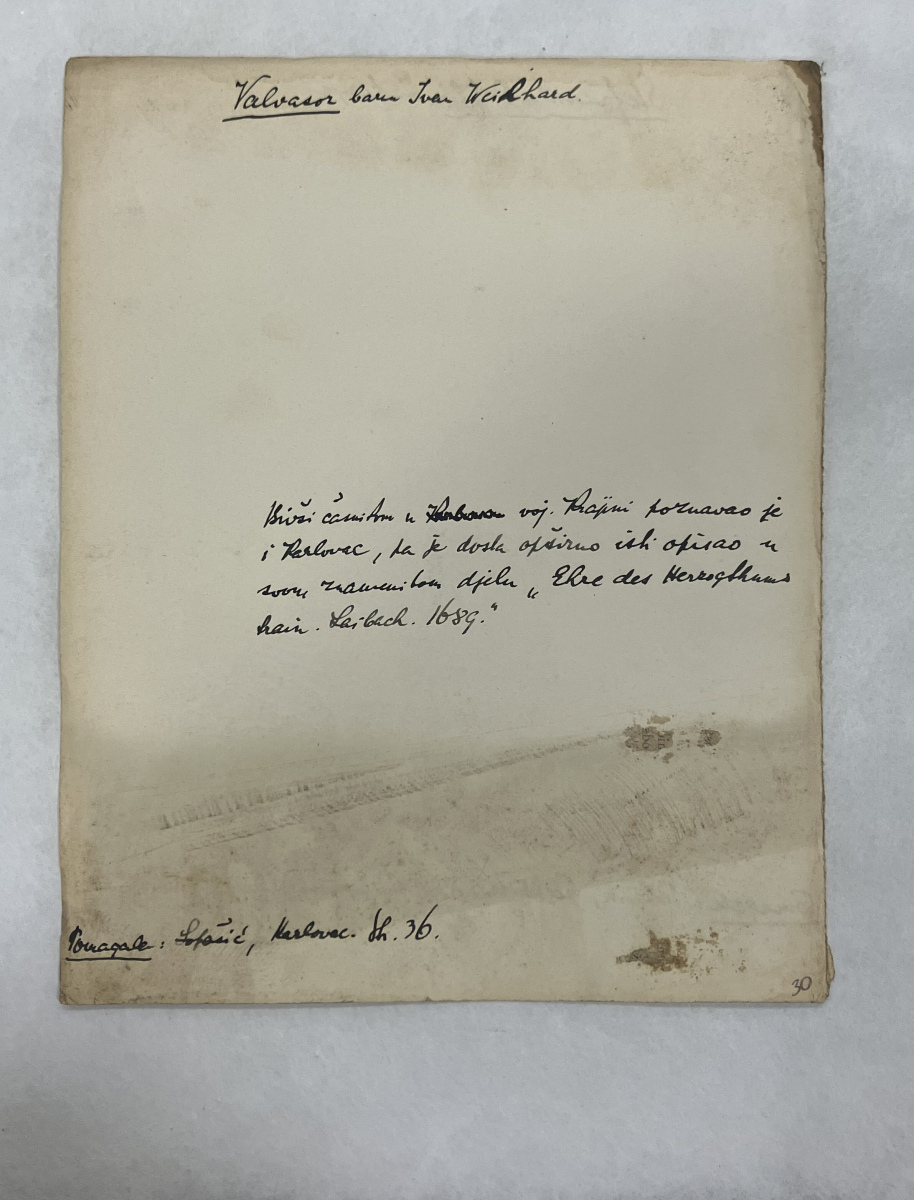 Valvasor barun Ivan Weikhard.
Bivši častnikom u voj. Krajini poznavao je
i Karlovac, pa je dosta opširno isti opisao u
svom znamenitom djelu „Ehre des Herzogthums
Krain. Laibach. 1689."
Pomagala: Lopašić, Karlovac. Str. 36.
30